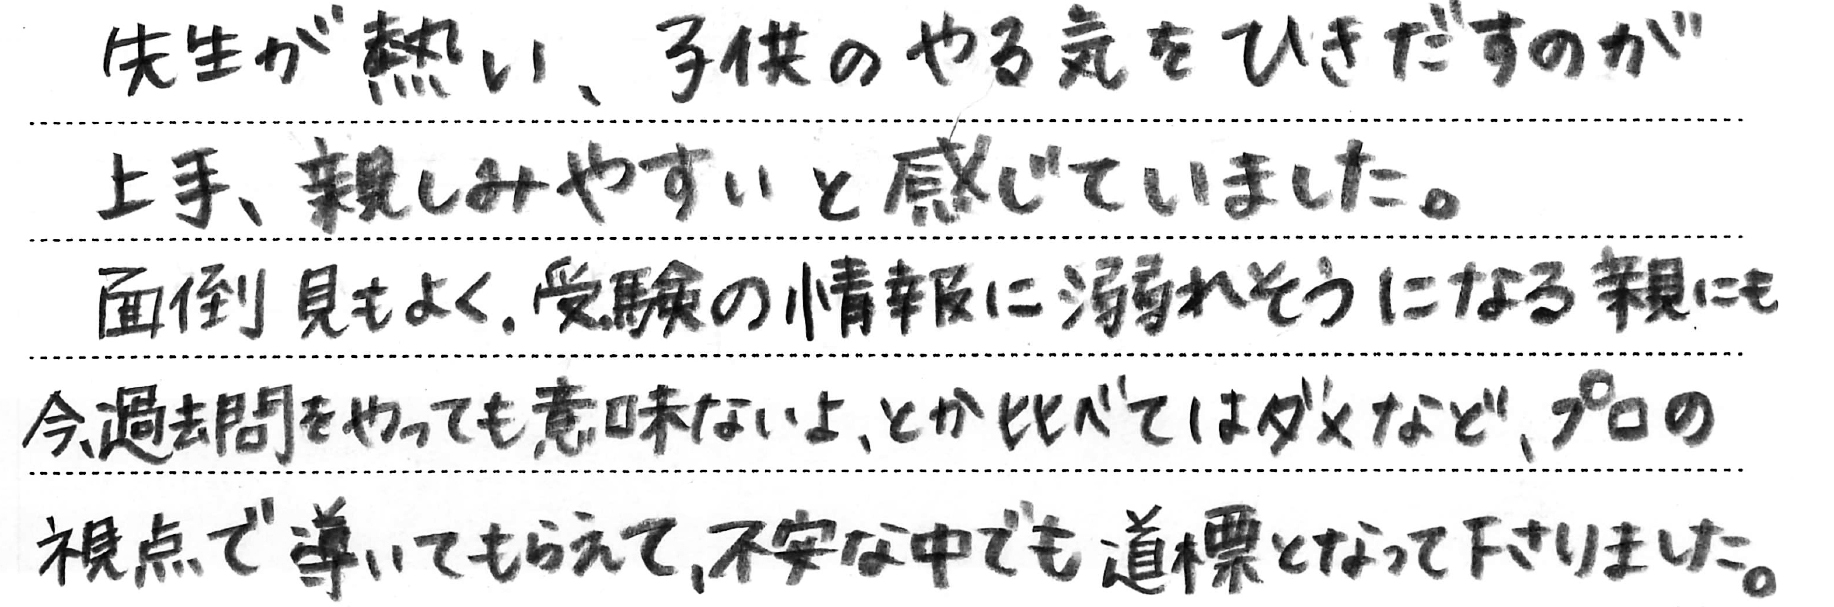 先生が熱い、子供のやる気をひきだすのが
上手、親しみやすいと感じていました。
面倒見もよく、受験の情報に溺れそうになる親にも
今、過去問をやっても意味ないよ、とか比べてはダメなど、プロの
視点で導いてもらえて、不安な中でも道標となって下さりました。